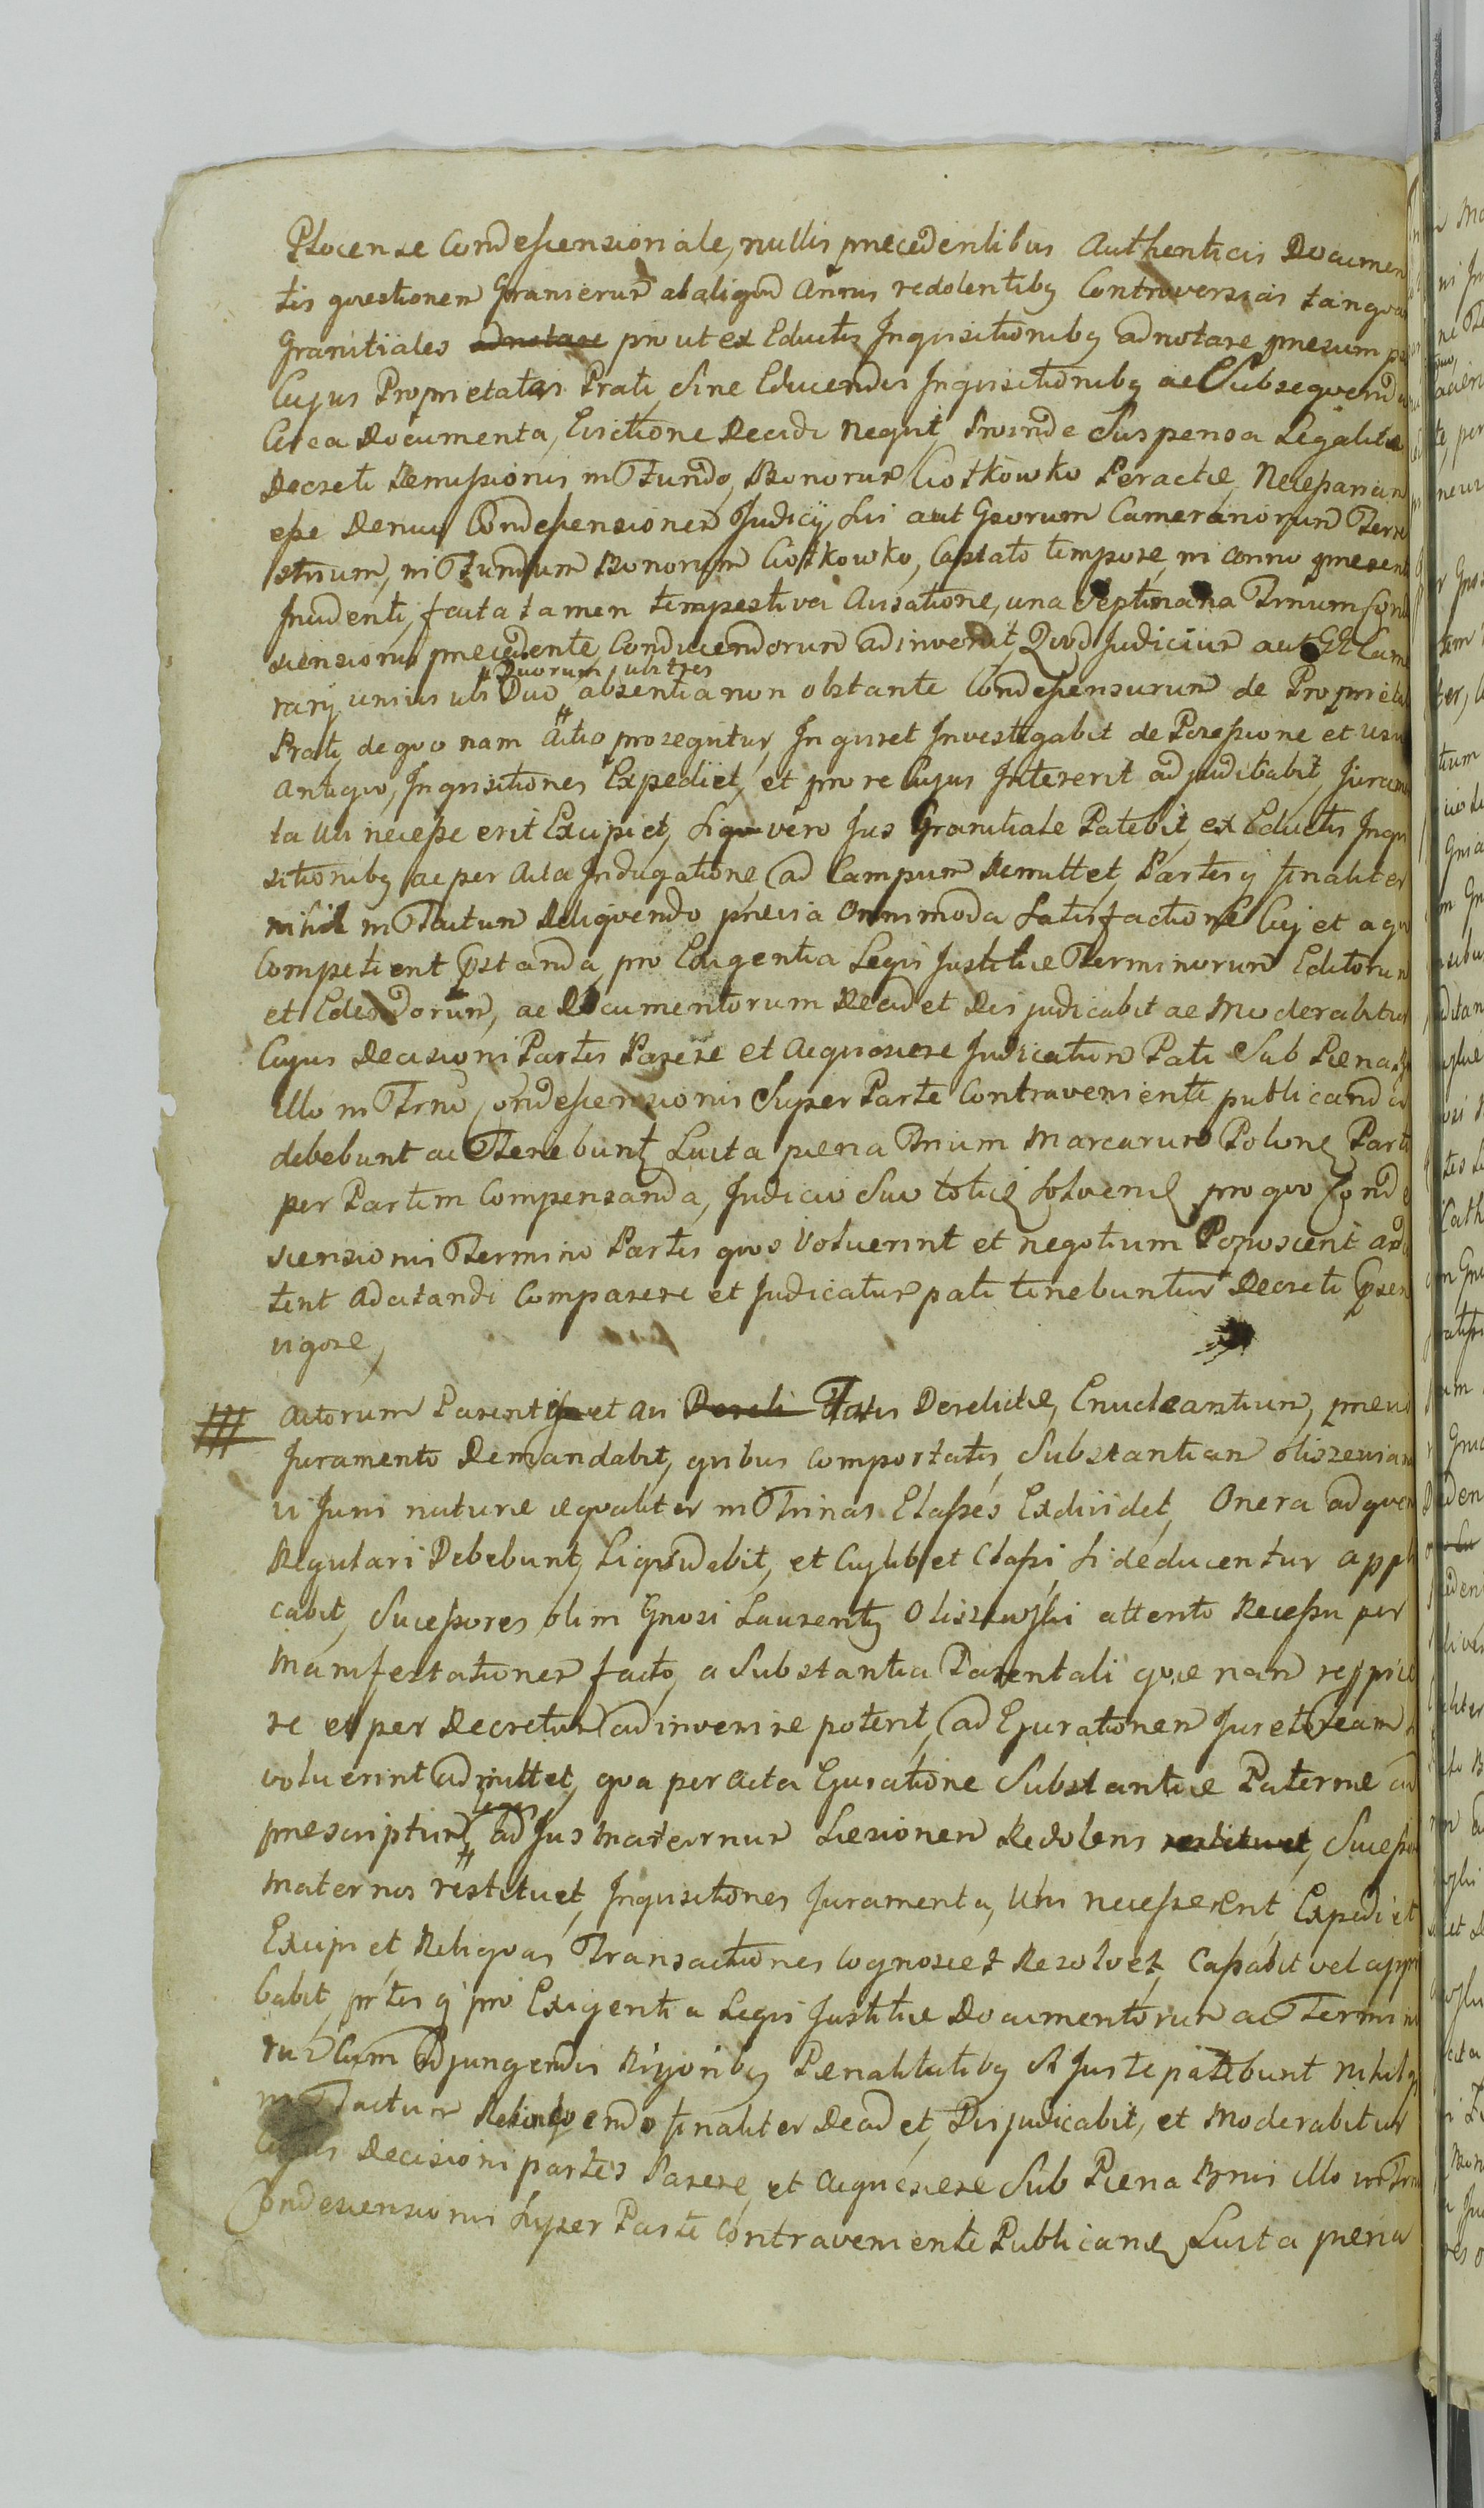 Plocense Condescensionale, nullis precedentibus Authenticis Documen
tis questionem Granierum ab aliquod Annis redolentibq Controversias tanqua
Granitiales adnotare prout ex Eductis Inquisitionibq adnotare presump
Cujus Proprietatis Prati, Sine Educendis Inquisitionibq ac Subsequend
Circa Documenta, Lisitione Decidi nequit, Proinde Suspensa Legalita
Decreti Remissionis in Fundo, Bonorum Ciołkowko Peractæ, Necessarium
esse Denuo Condescensionem Judicÿ Sui aut Gsorum Cameranorum Terre
strium, in Fundum Bonorum Ciołkowko, Captato tempore, in anno presenti
Incidenti, facta tamen tempestiva Avisatione, una Septimana Trnum Conde
scensionis precedente, Conducendorum adinvenit, Quod Judicium aut GG Came
rarÿ unius ubi Duo absentia non obstante Condescensurum de Proprieta
Duorum ubi tres
Prati, de quo nam Actio prosequitur, Inquiret Investigabit de Possessione et usu
antiquo, Inquisitiones Expediet, et pro re Cujus Intererit adjudicabit, Juramen
ta ubi necesse erit Excipiet, Si vero Jus Granitiale Patebit, ex Eductis Inqui
sitionibq ac per Acta Indagatione, ad Campum Remittet, Partesq finaliter
nihil in Factum Reliquendo previa Omnimoda Satisfactione Cuj et a quo
Competient Pstanda, pro Exigentia Legis Justitiæ Terminorum Editorum
et Edendorum, ac Documentorum Decidet Disjudicabit ac Moderabitur
Cujus Decisioni Partes Parere et Acquiescere Judicatum Pati Sub Pœna
illo in Trno Condescensionis Super Parte Contraveniente publicanda
debebunt ac Tenebunt Luita pœna Trium Marcarum Polon Parti
per Partem Compensanda, Judicio Suo toties Solven pro quo Conde
scensionis Termino Partes quos Voluerint et negotium Poposcerit
tent adcitandi Comparere et Judicatum pati tenebuntur Decreti Psen
vigore,
Actorum Parent et an Dereli Fatis Derelictæ, Enucleantium, previo
Juramento Demandabit, quibus comportatis, Substantiam Oliszewian
ii Juri nature æqualiter in Trinas Classes Exdividet, Onera ad quem
Regulari Debebunt, Liquidabit, et Cuylibet Classi, Si deducentur appli
cabit, Sucessores olim Gnosi Laurentÿ Oliszewski attento Recessu per
Manifestationem facto, a Substantia Parentali quæ nam respice
re et per Decretum adinvenire poterit, ad Ejurationem Juret Seam
voluerint admittet, qua per acta Ejuratione Substantiæ Paternæ ad
prescriptum Legis ad Jus Maternum Læsionem Redolens restituet, Sucessor
maternos restituet, Inquisitiones Juramenta, Ubi necesse erit, Expediet
Excipiet, Reliquas Transactiones Cognoscet Resolvet, Cassabit vel appro
babit, prtesq pro Exigentia Legis Justitiæ Documentorum ac Termino
rum Cum Adjungendis Rigoribq Pœnalitatibq Si Juste patebunt nihil q
in Factum Relinquendo finaliter Decidet, Disjudicabit, et Moderabitur
Cujus Decisioni partes Parere, et Acquiescere Sub Pœna Bnis illo in Trno
Condescensionis Super Parte Contraveniente Publican, Luita pœna